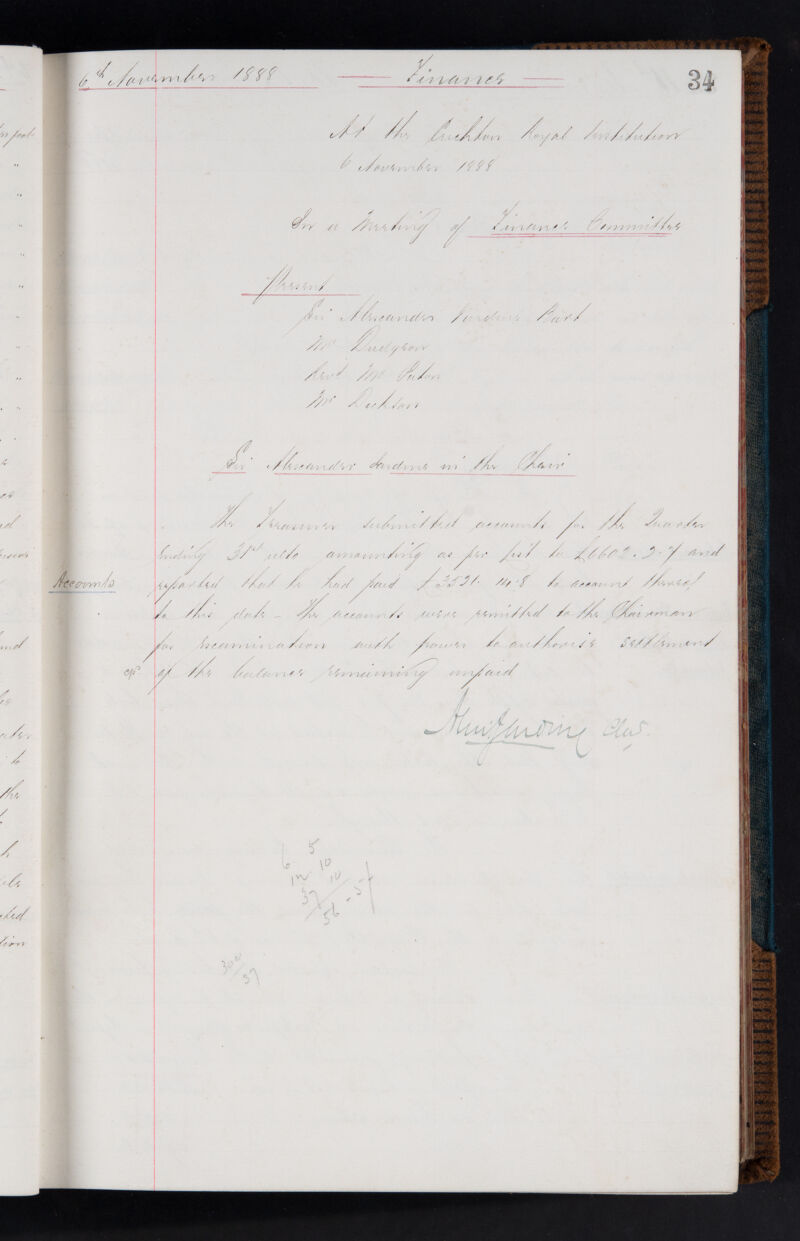 6th November 1888 Finance 34
At the Crichton Royal Institution
6 November 1888
In a Meeting of Finance Committee
Present
Sir Alexander Jardine Bart
Mr Dudgeon
Revd Mr Paton
Mr Dickson
Sir Alexander Jardine in the Chair
The Treasurer submitted accounts for the Quarter
Accounts
ending 31st ulto amounting as per list to and
reported that he had paid £3521. 14. 8 to account thereof
to this date - The accounts were remitted to the Chairman
for examination with power to authorise settlement
of the balance remaining unpaid
Alex Jardine
6 5
12 10
37 10
56
300/37